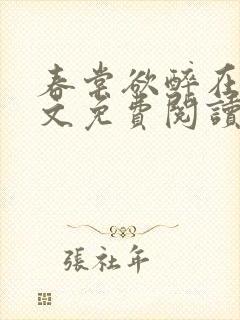 春棠欲醉在
文免費閱讀
張社年